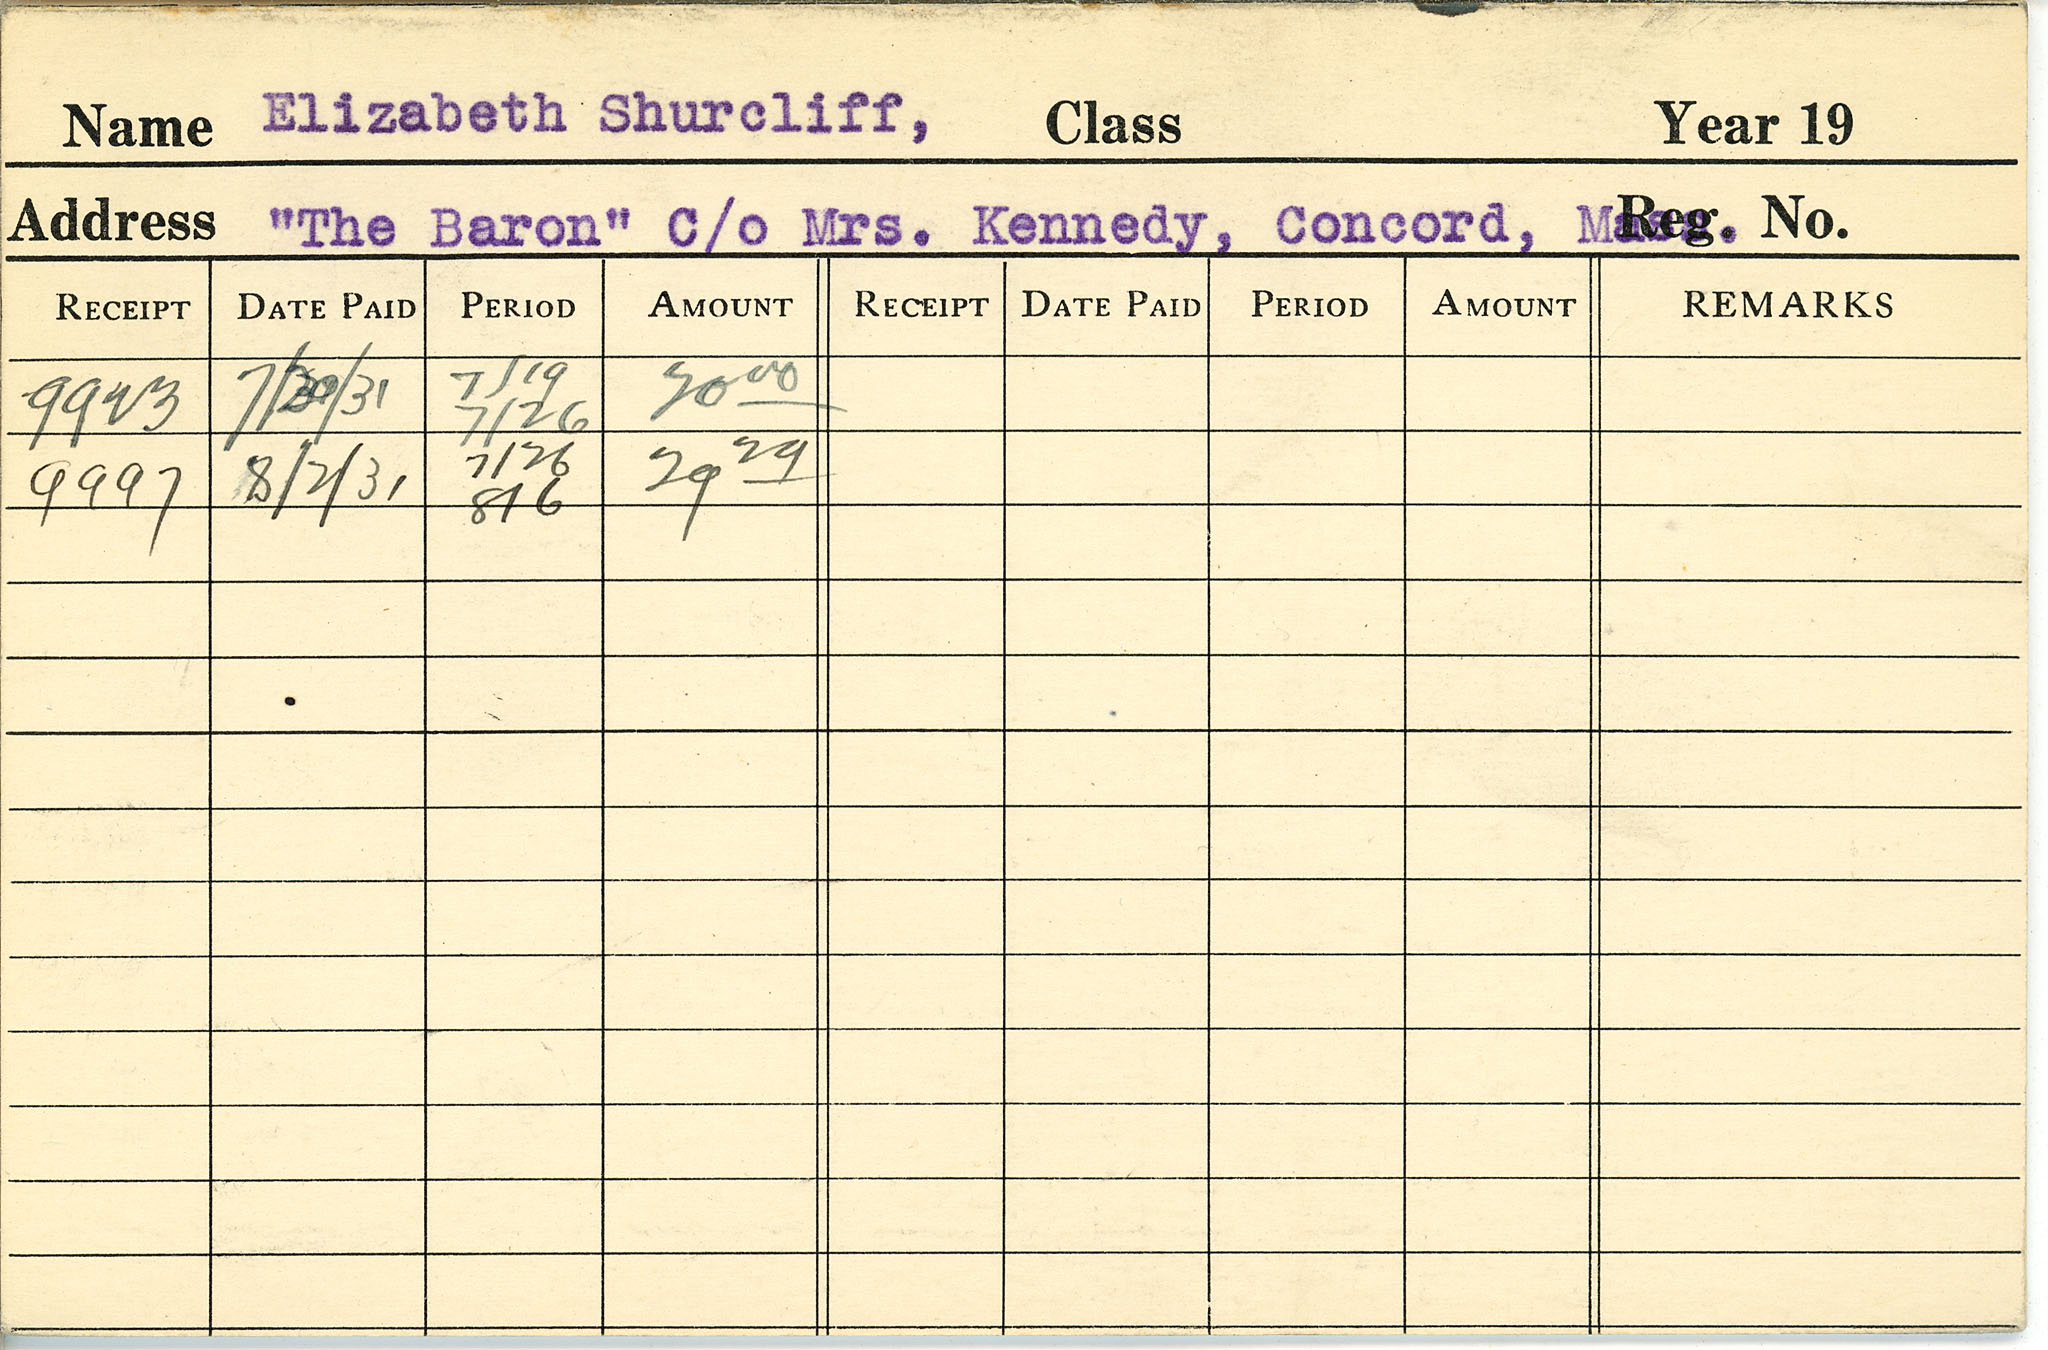 Name Elizabeth Shurcliff, Class Year 19
Address "The Baron" C/o Mrs. Kennedy, Concord, Mass. Reg. No.
RECEIPT DATE PAID PERIOD AMOUNT RECEIPT DATE PAID PERIOD AMOUNT REMARKS
9923 7/20/31 7/19 20 00
7/26
9997 8/2/31 7/26 29 29
8/6